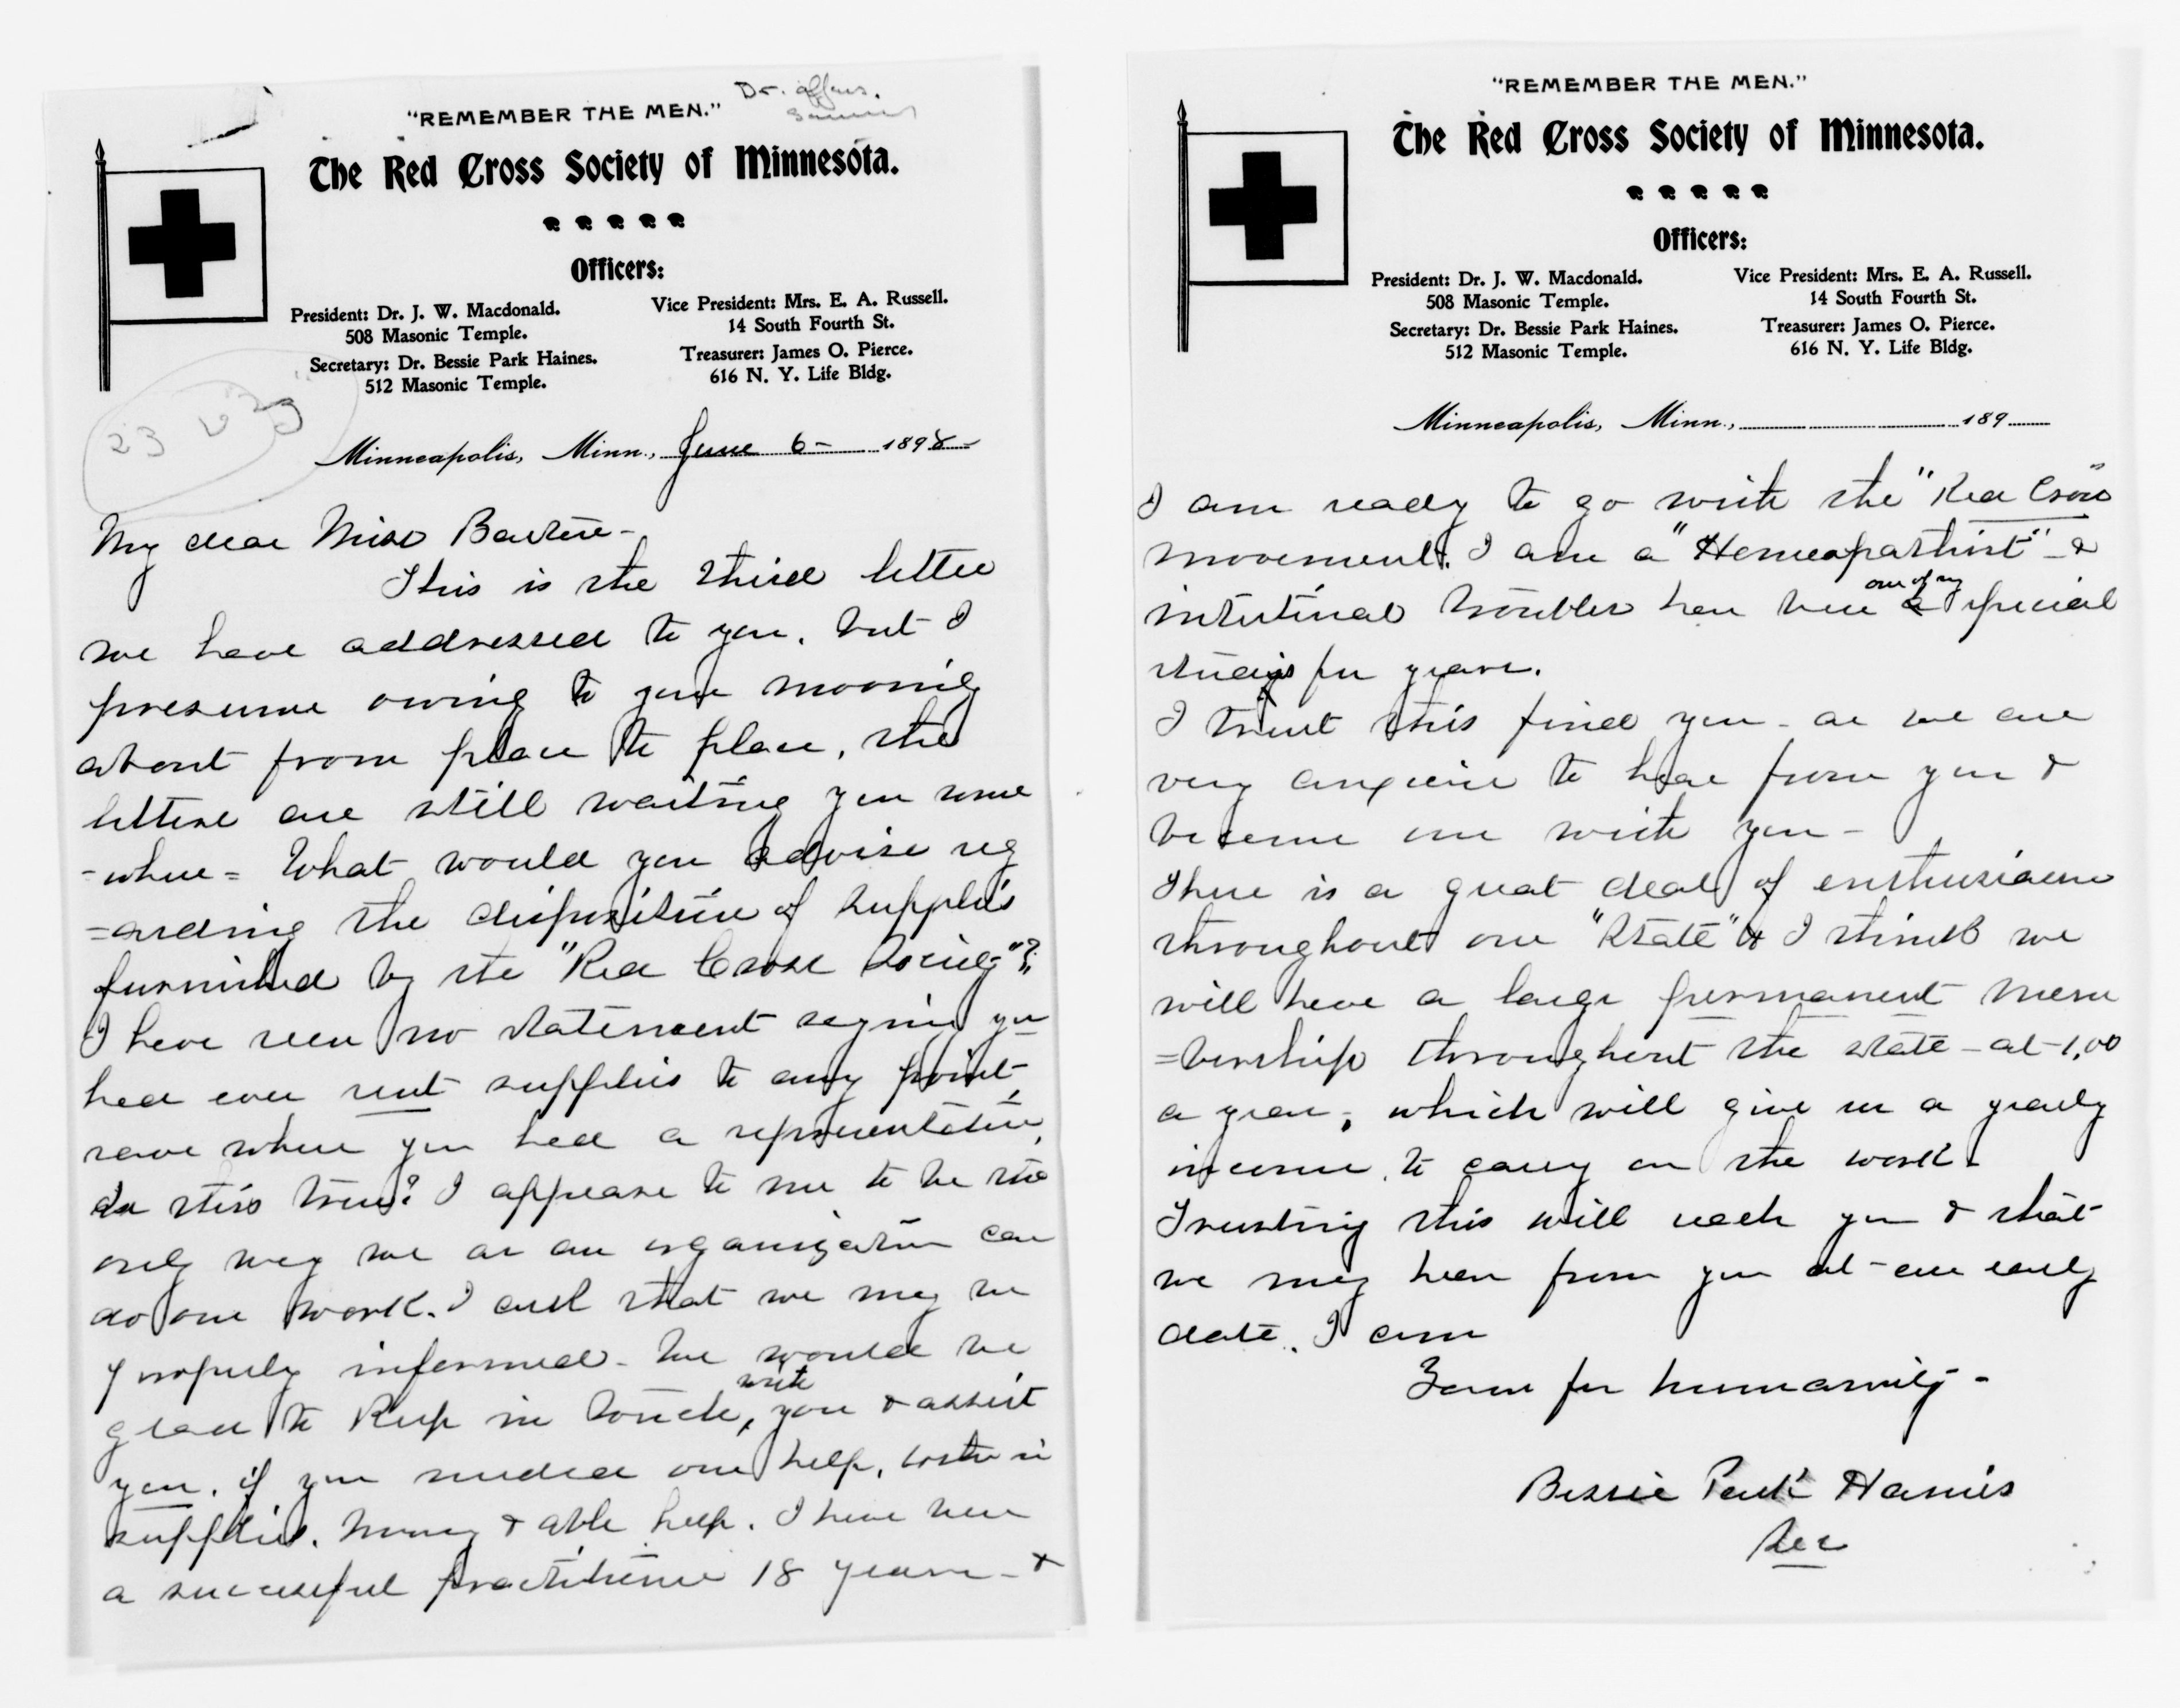 Dr. offers.
"REMEMBER THE MEN."
The Red Cross Society of Minnesota.
Officers:
President: Dr. J. W. Macdonald.
508 Masonic Temple.
Secretary: Dr. Bessie Park Haines.
512 Masonic Temple.
Vice President: Mrs. E. A. Russell.
14 South Fourth St.
Treasurer: James O. Pierce.
616 N. Y. Life Bldg.
23
Minneapolis, Minn., June 6- 1898-
My dear Miss Barton-
This is the third letter
we have addressed to you, but I
presume owing to your moving
about from place to place, the
letters are still waiting you some
-where= What would you advise reg
=arding the disposition of supplies
furnished by the "Red Cross Society"?
I have seen no statement saying you
had ever sent supplies to any point
save where you had a representative,
is this true? I appears to me to be the
only way we as an organization can
do our work. I ask that we may be
properly informed- We would be
glad to keep in touch, with you & assist
you, if you needed our help, both in
supplies, money & able help. I have been
a successful practitioner 18 years-&
"REMEMBER THE MEN."
The Red Cross Society of Minnesota.
Officers:
President: Dr. J. W. Macdonald.
508 Masonic Temple.
Secretary: Dr. Bessie Park Haines.
512 Masonic Temple.
Vice President: Mrs. E. A. Russell.
14 South Fourth St.
Treasurer: James O. Pierce.
616 N. Y. Life Bldg.
Minneapolis, Minn., 189
I am ready to go with the "Red Cross"
movement. I am a "Homeopathist"-&
intestinal troubles has been one of my special
studys for years.
I trust this finds you- as we are
very anxious to hear from you &
become one with you-
There is a great deal of enthusiasm
throughout our "State" & I think we
will have a large permanent mem
=bership throughout the state-at-1,00
a year, which will give us a yearly
income, to carry on the work.
Trusting this will reach you & that
we may hear from you at-an early
date, I am
Yours for humanity-
Bessie Park Haines
Sec